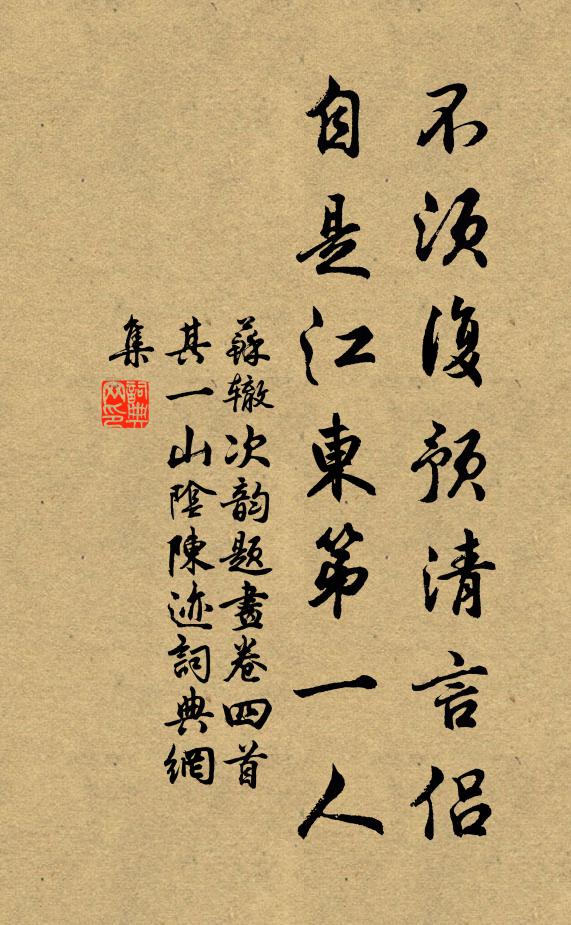 不須復預清言侶
自是江東第一人
蘇辙次韵題畫卷四首
其一山陰陳迹詞典網
集
詞典网印